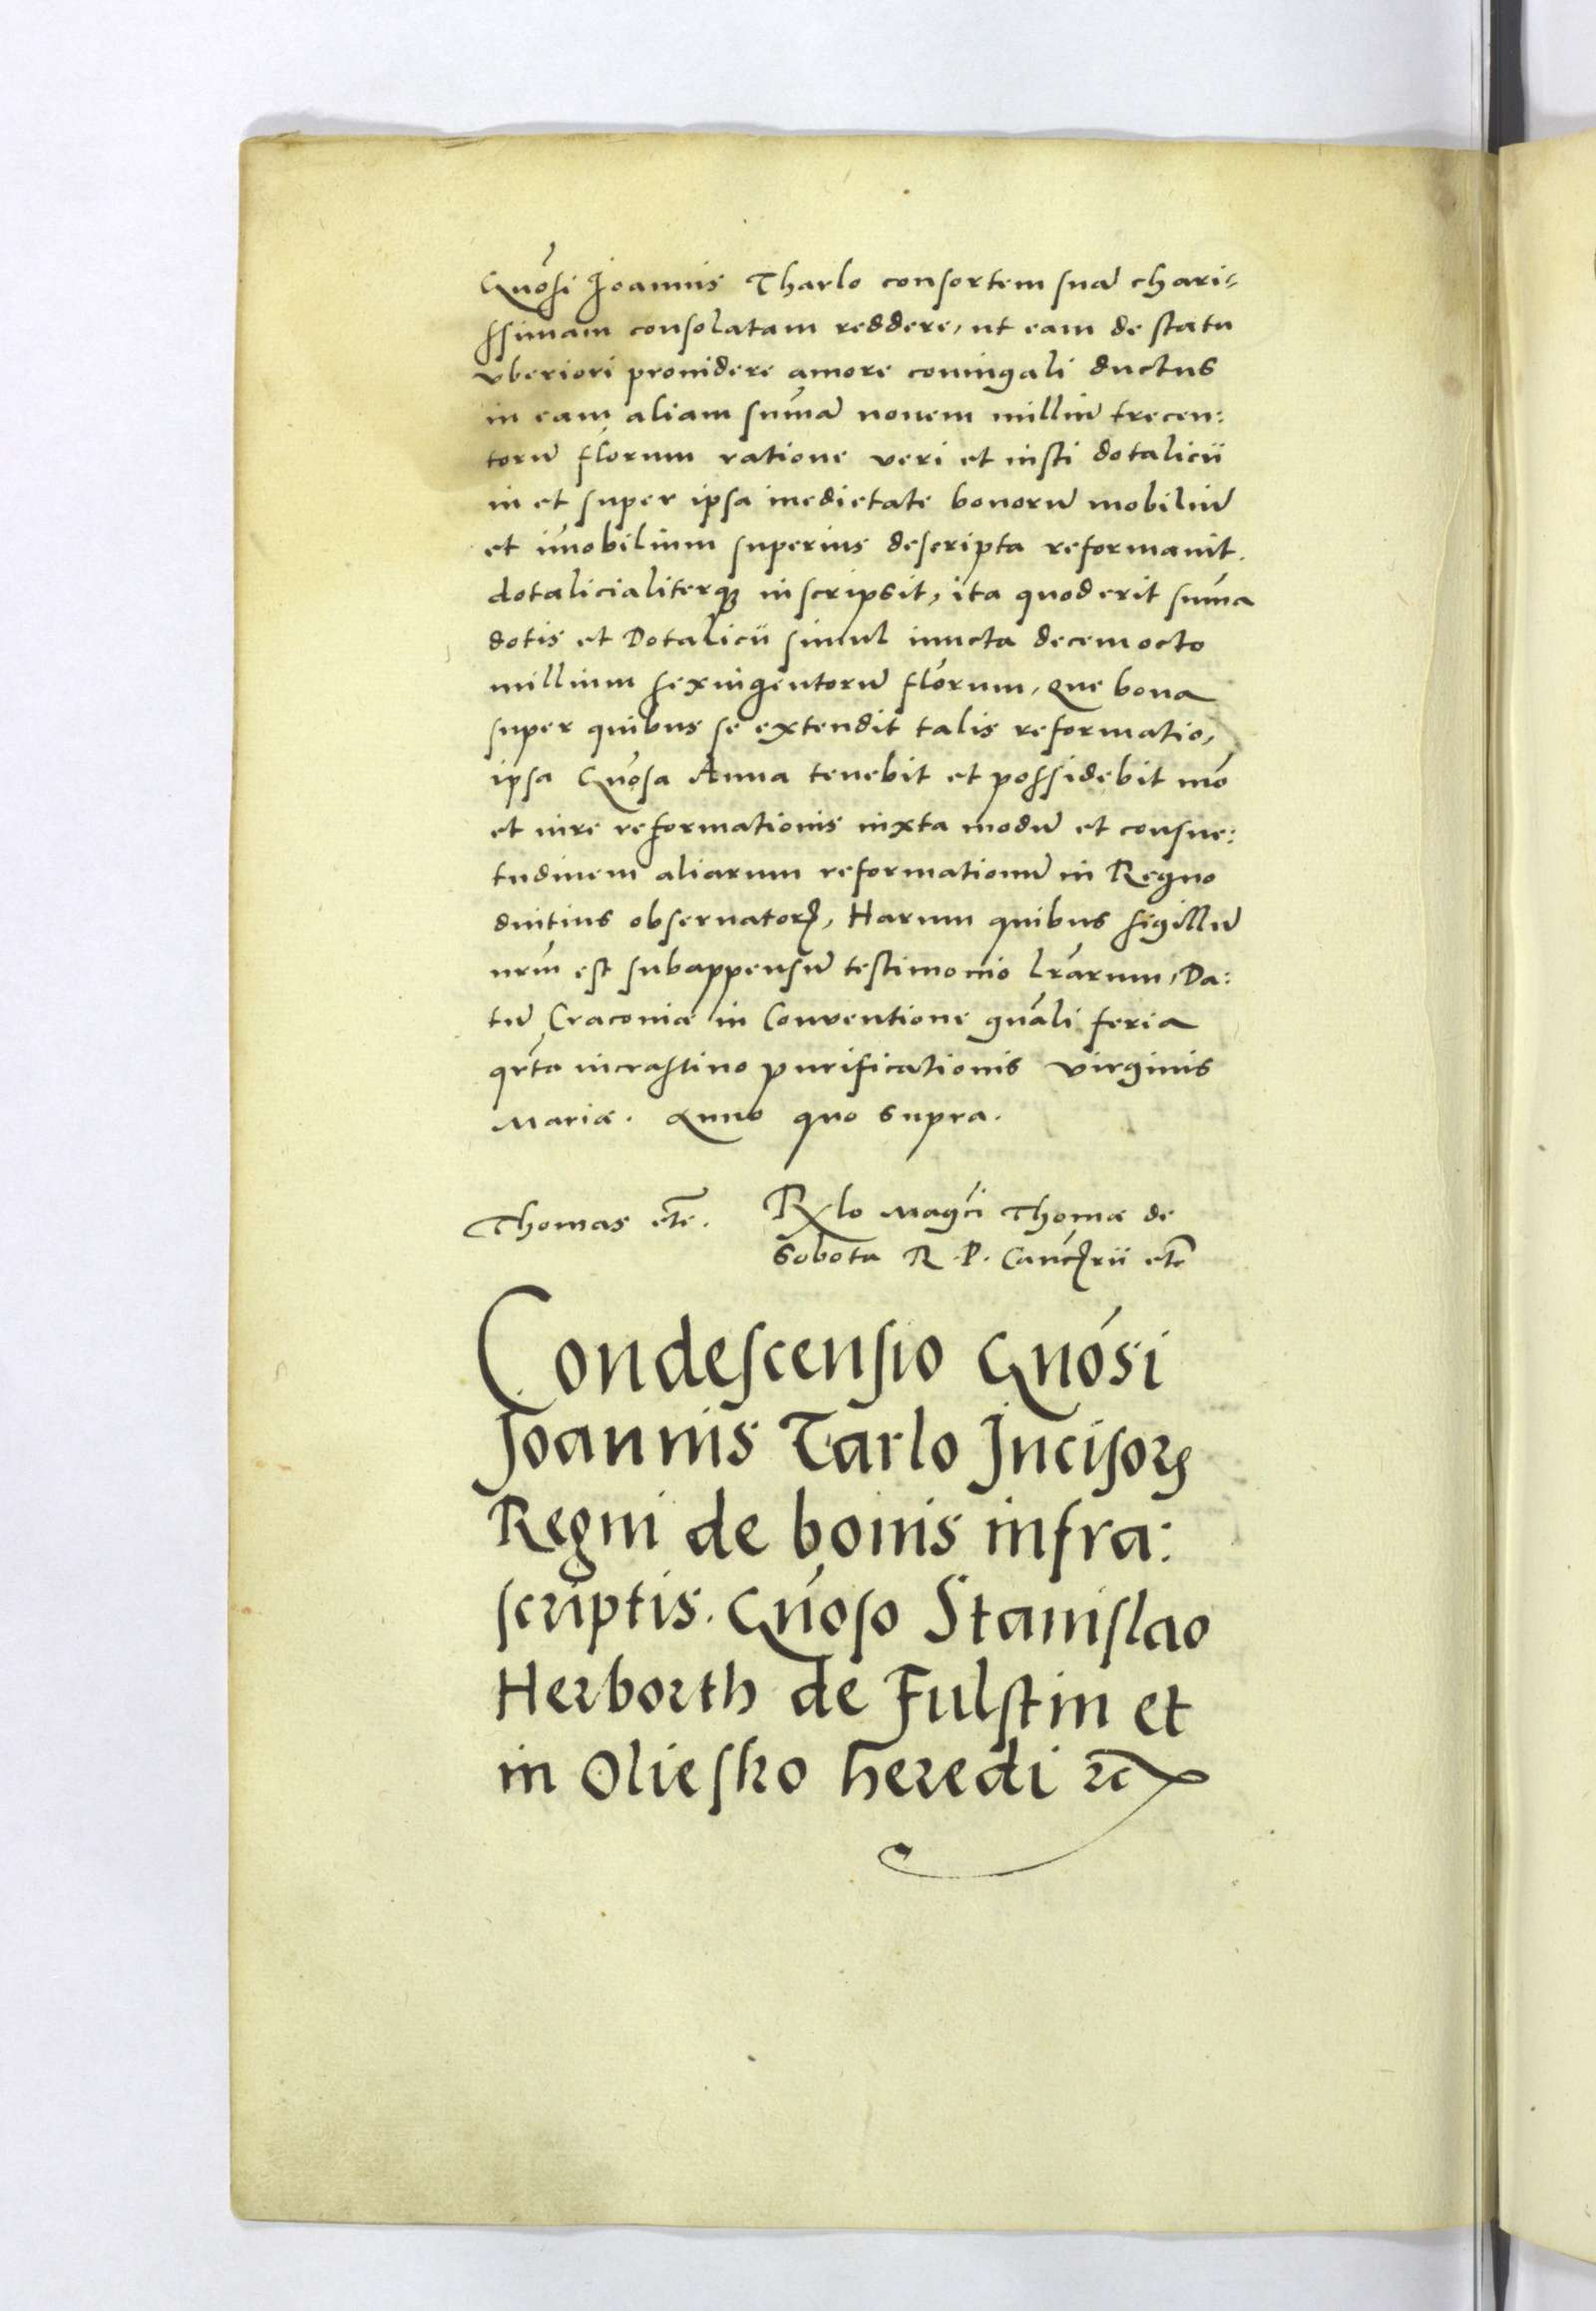 Gnosi Joannis Tharlo consortem suā chari-
ssimam consolatam reddere, ut eam de statu
vberiori prouidere amore coniugali ductus
in eam aliam sum̄ā nouem milliū trecen:
torū florum ratione veri et iusti dotalicii
in et super ipsa medietate bonorū mobiliū
et im̄obilium superius descripta reformauit.
dotalicialiterq; inscripsit, ita quod erit sum̄a
dotis et Dotalicii simul iuncta decem octo
millium sexingentorū florum, Que bona
super quibus se extendit talis reformatio,
ipsa Gnosa Anna tenebit et possidebit mō
et iure reformationis iuxta modū et consue:
tudinem aliarum reformationū in Regno
diutius obseruatorꝝ, Harum quibus sigillū
nrm̄ est subappensū testimonio lr̄arum, Da:
tū Cracouiæ in Conuentione gnāli feria
qrta in crastino purificationis virginis
Mariæ. Anno quo supra.
Thomas etc̄. Rlo Magci Thomæ de
Sobota R. P. Canc̄rii etc̄
Condescensio Gnosi
Joannis Tarlo Incisorꝭ
Regni de bonis infra:
scriptis. Gnoso Stanislao
Herborth de Fulstin et
in Oliesko heredi ꝛc